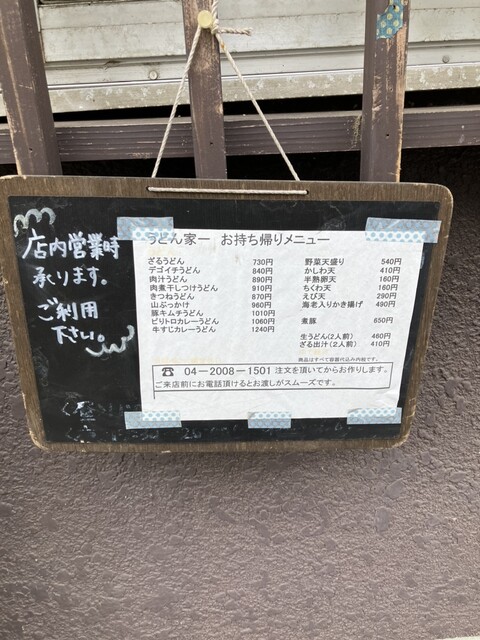 店内営業時
承ります。
ご利用
下さい。
うどん家一 お持ち帰りメニュー
ざるうどん 730円
デゴイチうどん 840円
肉汁うどん 890円
肉煮干しつけうどん 910円
きつねうどん 870円
山ぶっかけ 960円
豚キムチうどん 1010円
ピリトロカレーうどん 1060円
牛すじカレーうどん 1240円
野菜天盛り 540円
かしわ天 410円
半熟卵天 160円
ちくわ天 160円
えび天 290円
海老入りかき揚げ 490円
煮豚 650円
生うどん(2人前) 460円
ざる出汁(2人前) 410円
商品はすべて容器代込み内税です。
☎ 04-2008-1501 注文を頂いてからお作りします。
ご来店前にお電話頂けるとお渡しがスムーズです。